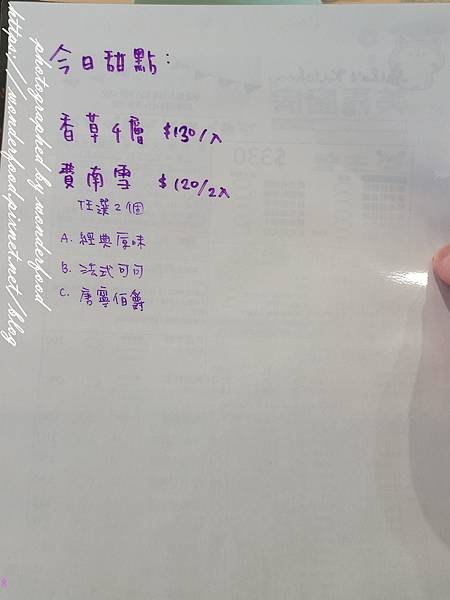 今日甜點：
香草千層 $130/入
費南雪 $120/2入
任選2個
A. 經典原味
B. 法式可可
C. 唐寧伯爵
photographed by wonderfood
https://wonderfood.pixnet.net/blog
$330